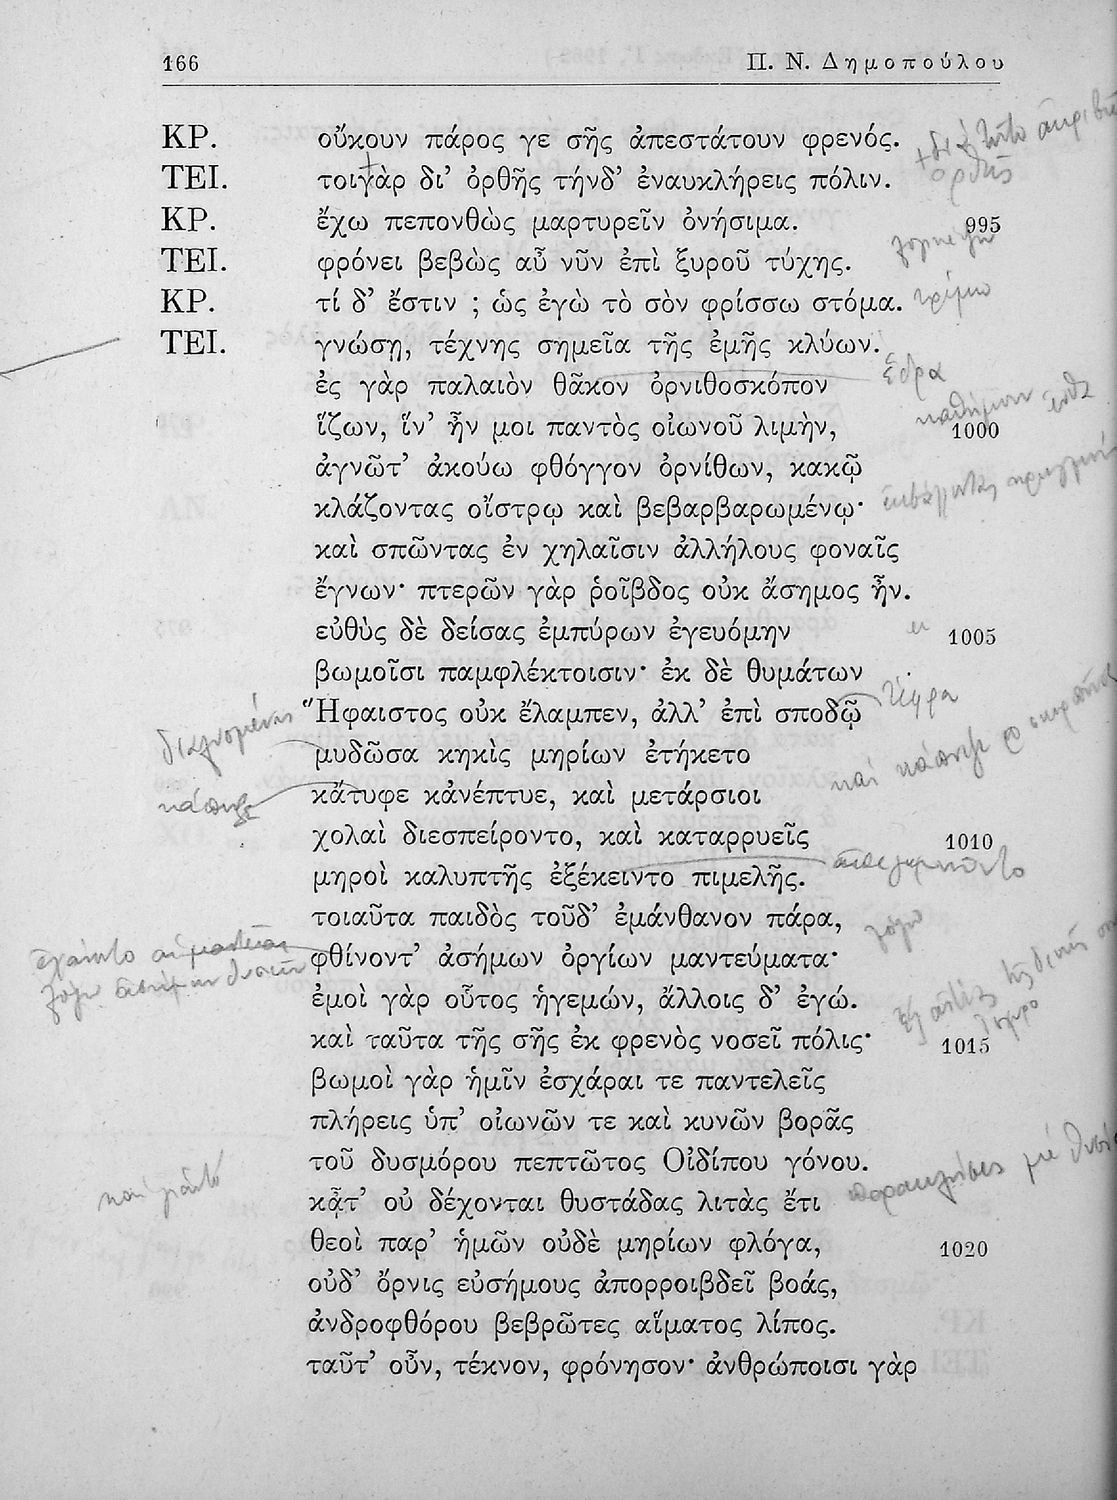 166 Π. Ν. Δημοπούλου
ΚΡ. οὔκουν πάρος γε σῆς ἀπεστάτουν φρενός.
ΤΕΙ. τοιγὰρ δι' ὀρθῆς τήνδ' ἐναυκλήρεις πόλιν.
ὀρθῆς
ΚΡ. ἔχω πεπονθὼς μαρτυρεῖν ὀνήσιμα. 995
ΤΕΙ. φρόνει βεβὼς αὖ νῦν ἐπὶ ξυροῦ τύχης.
ΚΡ. τί δ' ἔστιν ; ὡς ἐγὼ τὸ σὸν φρίσσω στόμα. τρέμω
ΤΕΙ. γνώσῃ, τέχνης σημεῖα τῆς ἐμῆς κλύων.
ἐς γὰρ παλαιὸν θᾶκον ὀρνιθοσκόπον ἕδρα
ἵζων, ἵν' ἦν μοι παντὸς οἰωνοῦ λιμὴν, 1000
ἀγνῶτ' ἀκούω φθόγγον ὀρνίθων, κακῷ
κλάζοντας οἴστρῳ καὶ βεβαρβαρωμένῳ·
καὶ σπῶντας ἐν χηλαῖσιν ἀλλήλους φοναῖς
ἔγνων· πτερῶν γὰρ ῥοῖβδος οὐκ ἄσημος ἦν.
εὐθὺς δὲ δείσας ἐμπύρων ἐγευόμην 1005
βωμοῖσι παμφλέκτοισιν· ἐκ δὲ θυμάτων
Ἥφαιστος οὐκ ἔλαμπεν, ἀλλ' ἐπὶ σποδῷ τέφρα
μυδῶσα κηκὶς μηρίων ἐτήκετο
κἄτυφε κἀνέπτυε, καὶ μετάρσιοι
χολαὶ διεσπείροντο, καὶ καταρρυεῖς 1010
μηροὶ καλυπτῆς ἐξέκειντο πιμελῆς.
τοιαῦτα παιδὸς τοῦδ' ἐμάνθανον πάρα,
φθίνοντ' ἀσήμων ὀργίων μαντεύματα·
ἐμοὶ γὰρ οὗτος ἡγεμών, ἄλλοις δ' ἐγώ.
καὶ ταῦτα τῆς σῆς ἐκ φρενὸς νοσεῖ πόλις· 1015
βωμοὶ γὰρ ἡμῖν ἐσχάραι τε παντελεῖς
πλήρεις ὑπ' οἰωνῶν τε καὶ κυνῶν βορᾶς
τοῦ δυσμόρου πεπτῶτος Οἰδίπου γόνου.
κᾆτ' οὐ δέχονται θυστάδας λιτὰς ἔτι
θεοὶ παρ' ἡμῶν οὐδὲ μηρίων φλόγα, 1020
οὐδ' ὄρνις εὐσήμους ἀπορροιβδεῖ βοάς,
ἀνδροφθόρου βεβρῶτες αἵματος λίπος.
ταῦτ' οὖν, τέκνον, φρόνησον· ἀνθρώποισι γὰρ